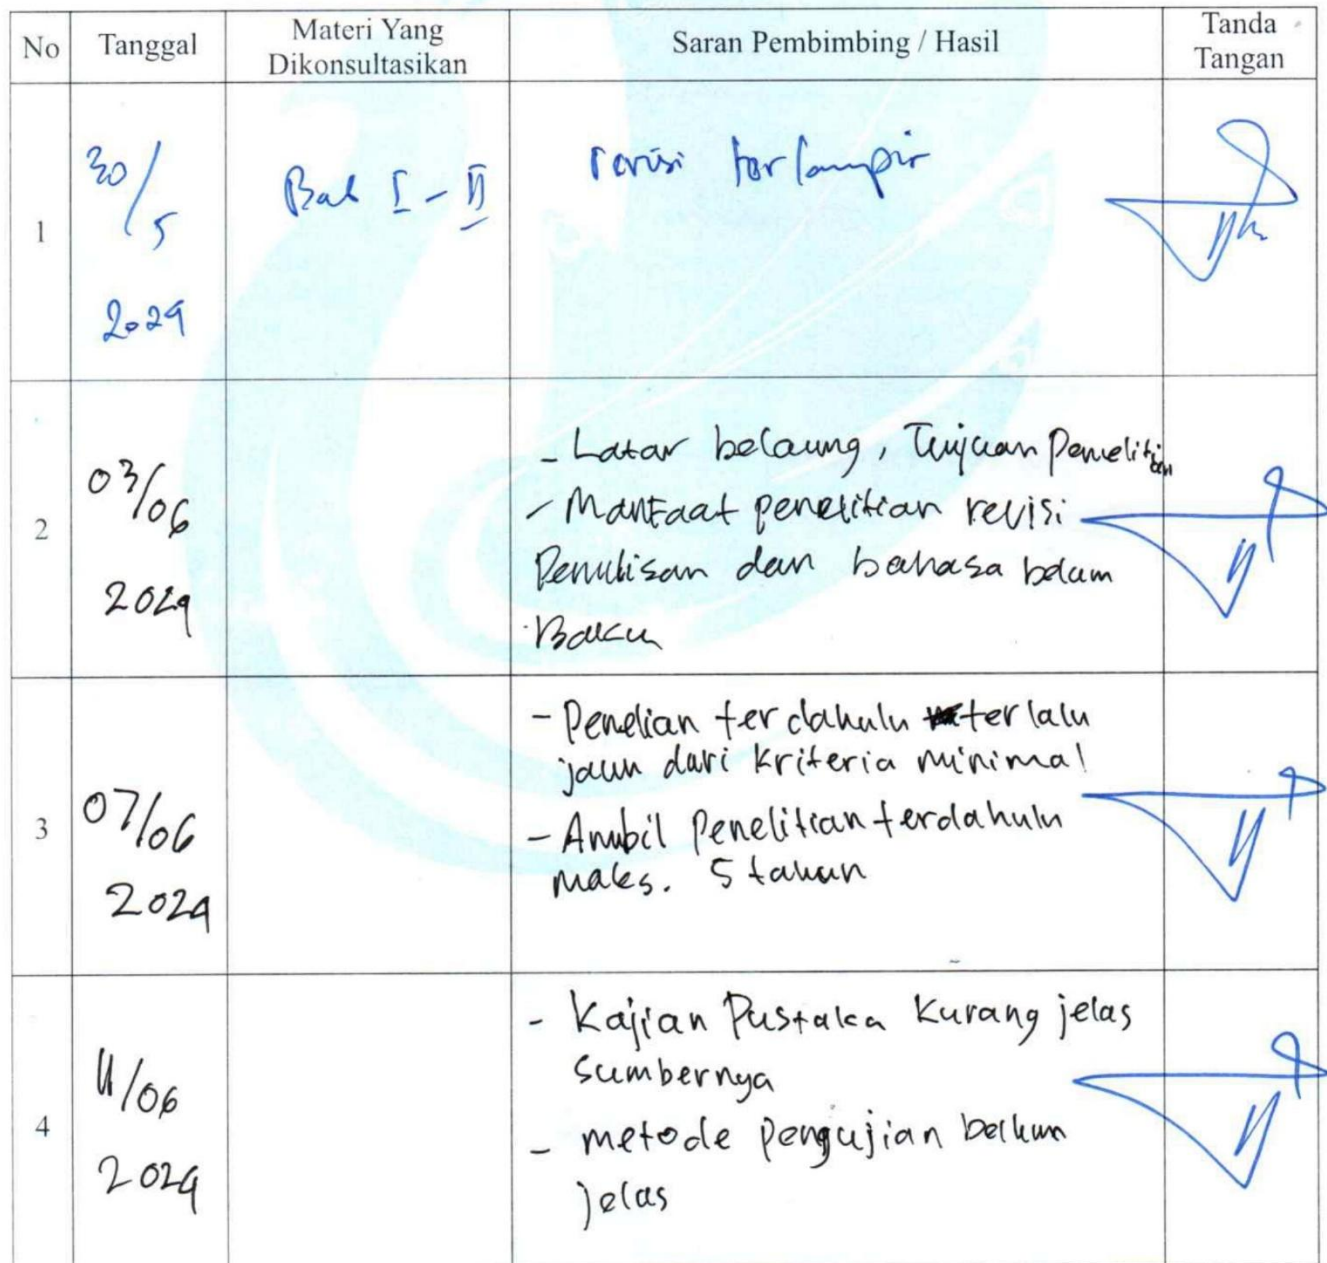 No Tanggal Materi Yang Dikonsultasikan Saran Pembimbing / Hasil Tanda Tangan
1 30/5 2024 Bab I - II revisi terlampir
2 03/06 2024 - Latar belaung, Tujuan Penelitian
- Manfaat penelitian revisi
Penulisan dan bahasa belum
Baku
3 07/06 2024 - Penelian terdahulu terlalu
jauh dari kriteria minimal
- Ambil Penelitian terdahulu
maks. 5 tahun
4 11/06 2024 - Kajian Pustaka Kurang jelas
sumbernya
- metode pengujian belum
jelas